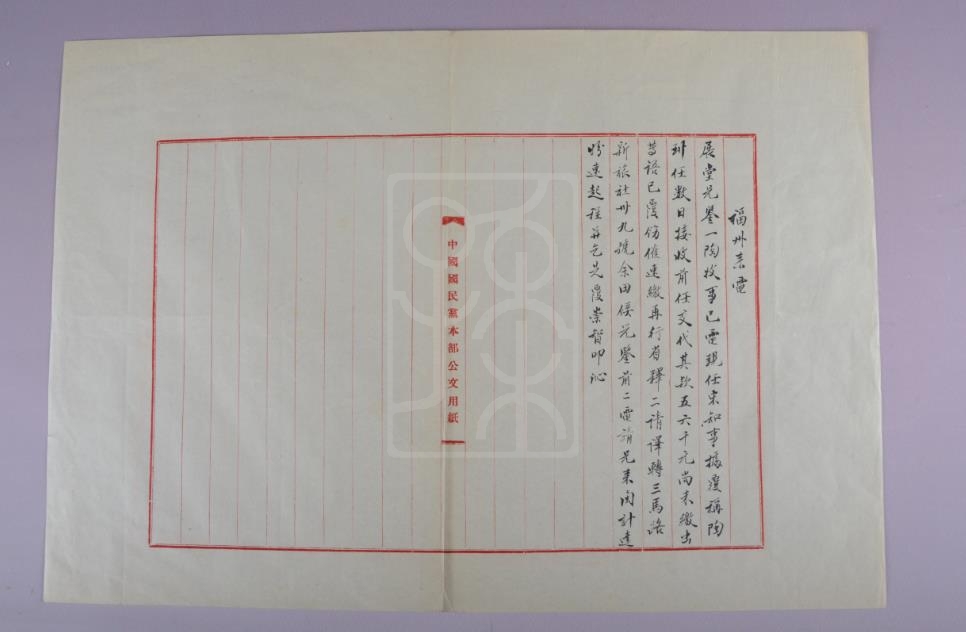 福州來電
展堂兄鑒一陶牧事已電現任宋知事據覆稱陶
卸任數日接收前任交代其款五六千元尚未繳出
等語已覆飭催速繳再行省釋二請譯轉三馬路
新旅社卅九號余田侯兄鑒前二電請兄來閩計達
盼速起程并乞先覆崇智叩沁
中國國民黨本部公文用紙